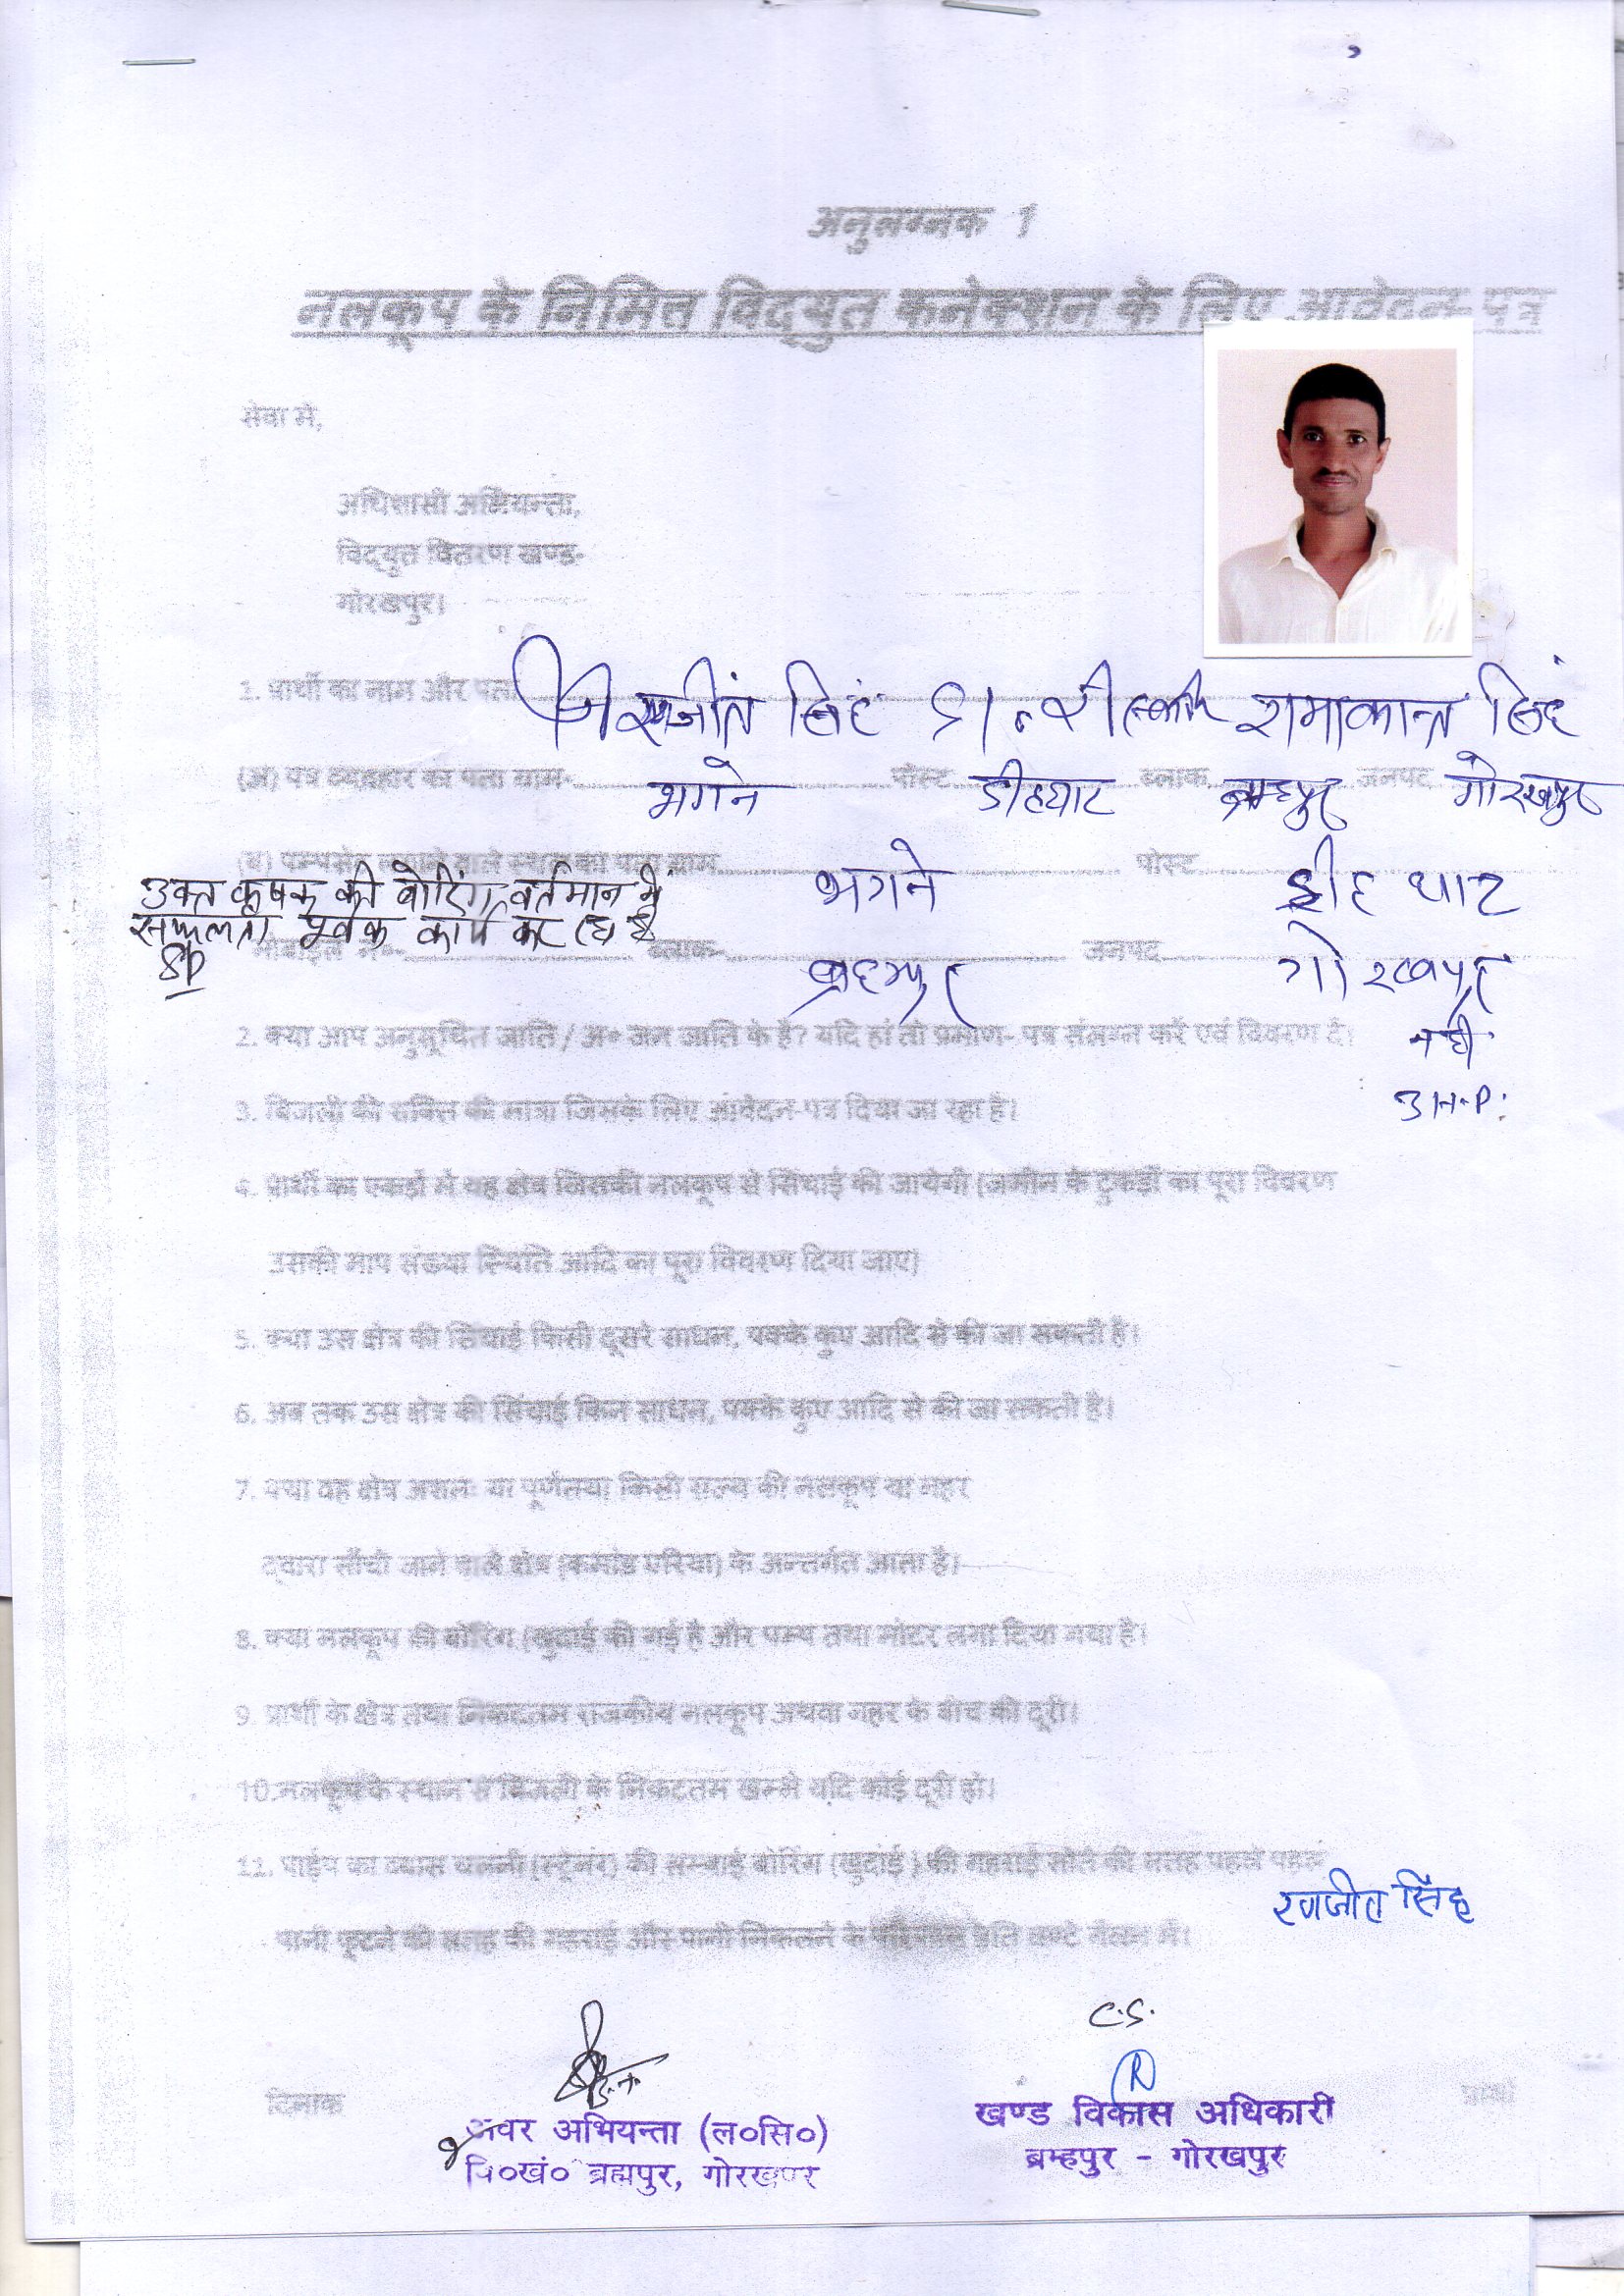 अनुलग्नक 1
नलकूप के निमित्त विद्युत कनेक्शन के लिए आवेदन-पत्र
सेवा में,
अधिशासी अभियन्ता,
विद्युत वितरण खण्ड-
गोरखपुर।
1. प्रार्थी का नाम और पता
रणजीत सिंह S/० श्री रामाकान्त सिंह
(अ) पत्र व्यवहार का पता ग्राम- पोस्ट ब्लाक जनपद
भगने डीहघाट ब्रम्हपुर गोरखपुर
(ब) पम्पसेट लगाने वाले स्थान का पता ग्राम पोस्ट
भगने डीह घाट
उक्त कृषक की बोरिंग वर्तमान में
सफलता पूर्वक कार्य कर रही है
मोबाइल नं०- ब्लाक- जनपद
ब्रहमपुर गोरखपुर
2. क्या आप अनुसूचित जाति / अ० जन जाति के है? यदि हां तो प्रमाण- पत्र संलग्न करें एवं विवरण दें।
नही
3. बिजली की शक्ति की मात्रा जिसके लिए आवेदन-पत्र दिया जा रहा है।
3 H.P.
4. प्रार्थी का एकड़ों में वह क्षेत्र जिसकी नलकूप से सिंचाई की जायेगी (जमीन के टुकड़ों का पूरा विवरण
उसकी माप संख्या स्थिति आदि का पूरा विवरण दिया जाए)
5. क्या उस क्षेत्र की सिंचाई किसी दूसरे साधन, पक्के कुए आदि से की जा सकती है।
6. अब तक उस क्षेत्र की सिंचाई किन साधन, पक्के कुए आदि से की जा सकती है।
7. क्या वह क्षेत्र अंशतः या पूर्णतया किसी राज्य की नलकूप या नहर
द्वारा सींचे जाने वाले क्षेत्र (कमांड एरिया) के अन्तर्गत आता है।
8. क्या नलकूप की बोरिंग (खुदाई की गई है और पम्प तथा मोटर लगा दिया गया है।
9. प्रार्थी के क्षेत्र तथा निकटतम राजकीय नलकूप अथवा नहर के बीच की दूरी।
10.नलकूप के स्थान से बिजली के निकटतम खम्भे यदि कोई दूरी हो।
11. पाईप का व्यास चलनी (स्ट्रेनर) की लम्बाई बोरिंग (खुदाई ) की गहराई सोते की सतह पहले पहल
रणजीत सिंह
पानी फूटने की सतह की गहराई और पानी निकलने के परिमाण प्रति घण्टे गैलन में।
C.S.
दिनांक प्रार्थी
अवर अभियन्ता (ल०सि०)
वि०खं० ब्रह्मपुर, गोरखपुर
खण्ड विकास अधिकारी
ब्रम्हपुर - गोरखपुर